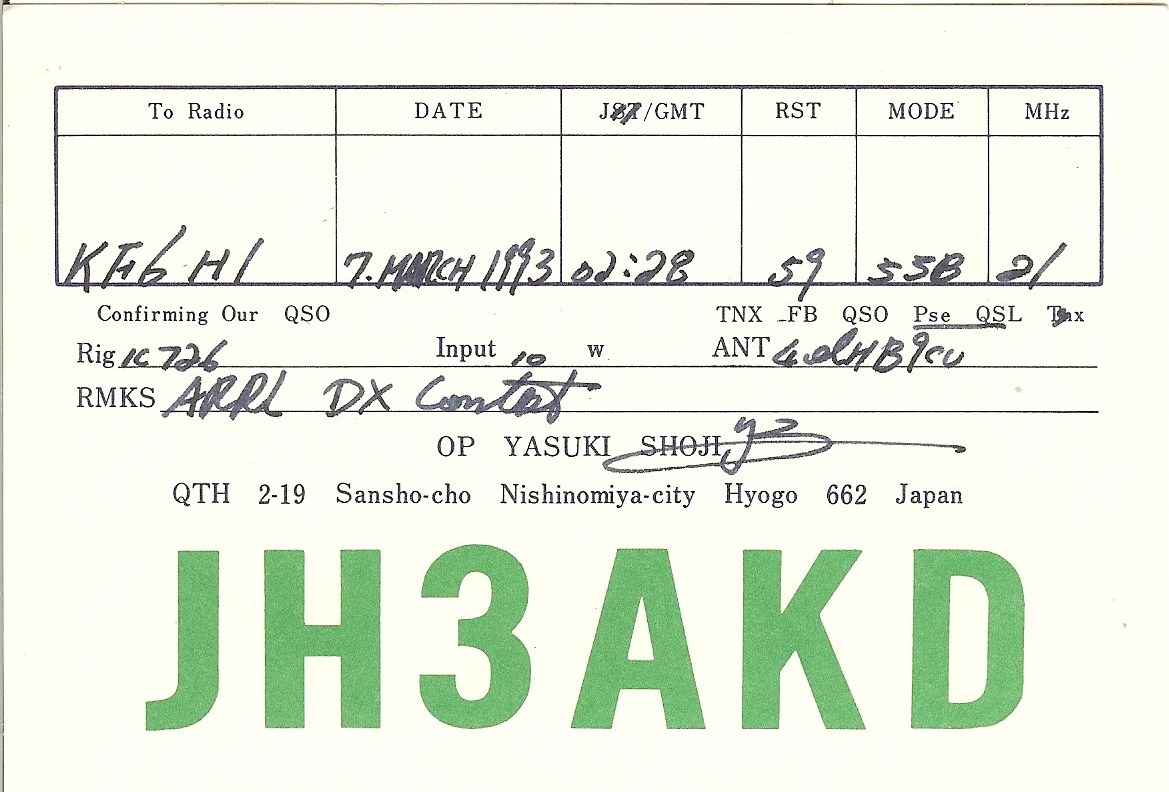 To Radio DATE JST/GMT RST MODE MHz
KF6HI 7.MARCH 1993 02:28 59 SSB 21
Confirming Our QSO TNX FB QSO Pse QSL Tnx
Rig IC 726 Input 10 w ANT 4elHB9CV
RMKS ARRL DX Contest
OP YASUKI SHOJI
QTH 2-19 Sansho-cho Nishinomiya-city Hyogo 662 Japan
JH3AKD